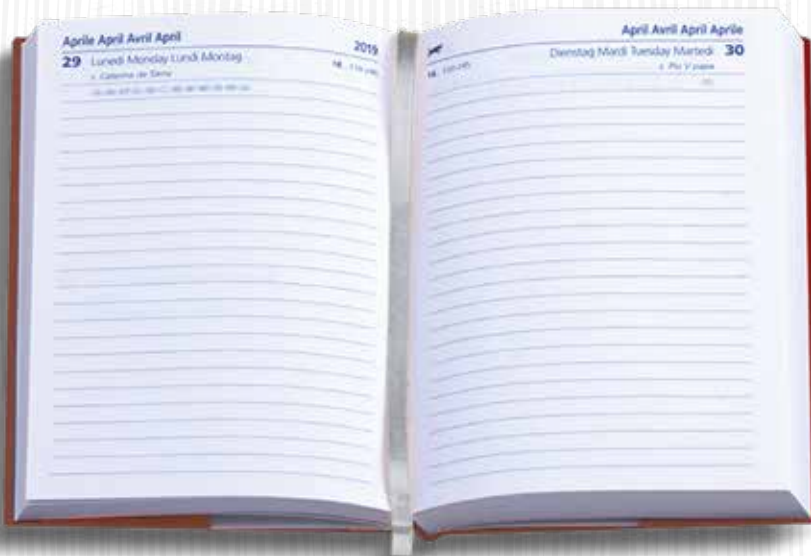 Aprile April Avril April
2019
29 Lunedì Monday Lundi Montag
s. Caterina da Siena
18
April Avril April Aprile
Dienstag Mardi Tuesday Martedì 30
18
s. Pio V papa